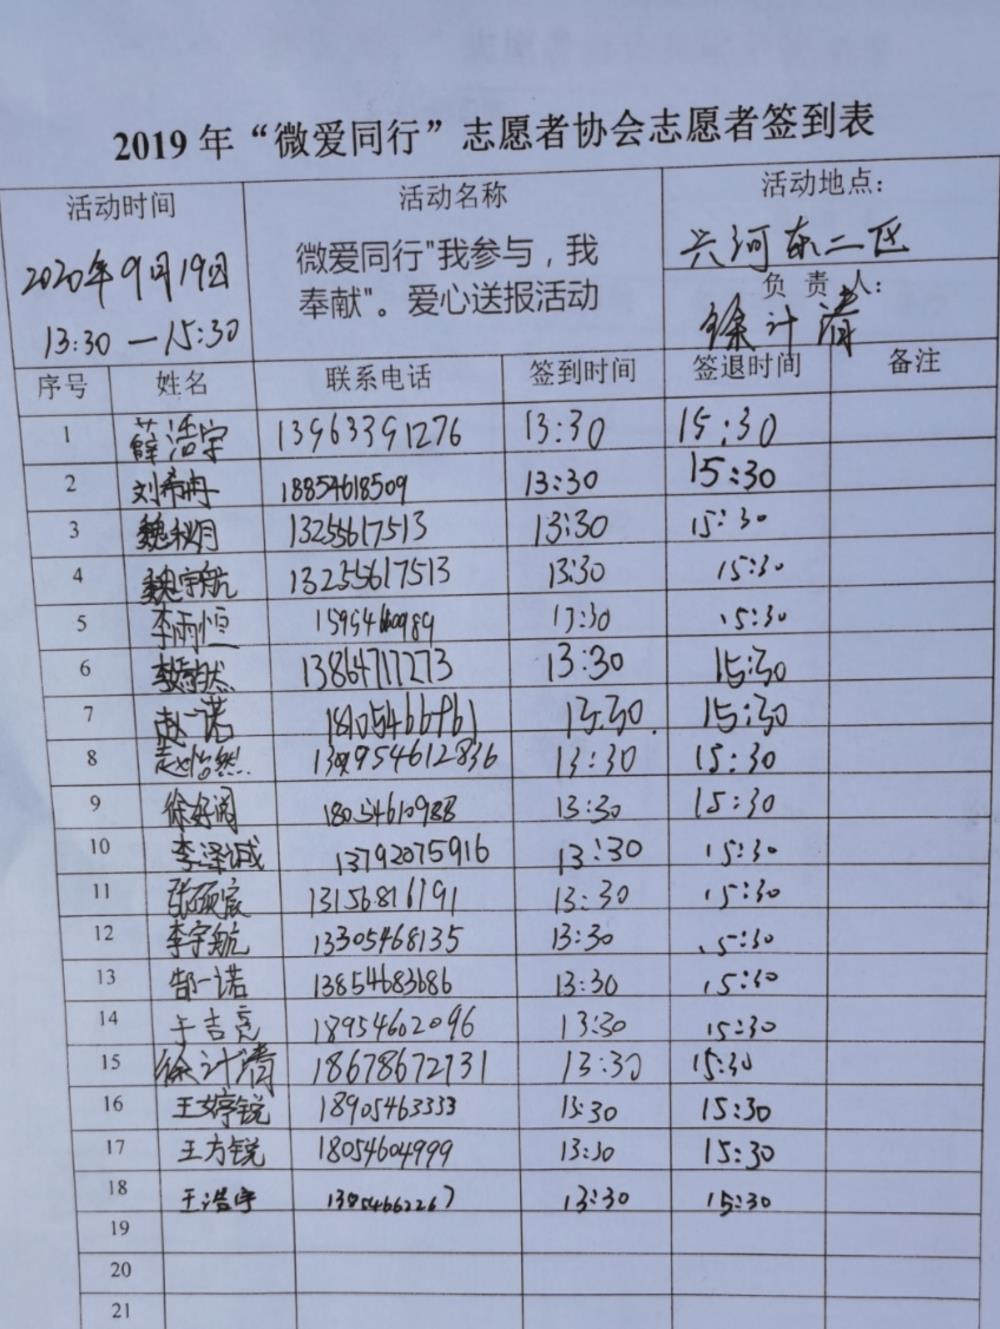 2019 年“微爱同行”志愿者协会志愿者签到表
活动时间 活动名称 活动地点：
2020年9月19日 微爱同行"我参与，我 兴河东二区
13:30 — 15:30 奉献"。爱心送报活动 负 责 人：
徐计清
序号 姓名 联系电话 签到时间 签退时间 备注
1 薛浩宇 13963391276 13:30 15:30
2 刘希冉 18854618509 13:30 15:30
3 魏秋月 13255617513 13:30 15:30
4 魏宇航 13255617513 13:30 15:30
5 李雨恒 13:30 15:30
6 13864711273 13:30 15:30
7 赵一诺 13:30 15:30
8 赵怡然 13:30 15:30
9 18054610988 13:30 15:30
10 李泽诚 13792075916 13:30 15:30
11 张硕宸 13156816191 13:30 15:30
12 李宇航 13305468135 13:30 15:30
13 郜一诺 13854683686 13:30 15:30
14 于吉亮 18954602096 13:30 15:30
15 徐计清 18678672731 13:30 15:30
16 王婷锐 18905463333 13:30 15:30
17 王方锐 18054604999 13:30 15:30
18 王浩宇 13:30 15:30
19
20
21